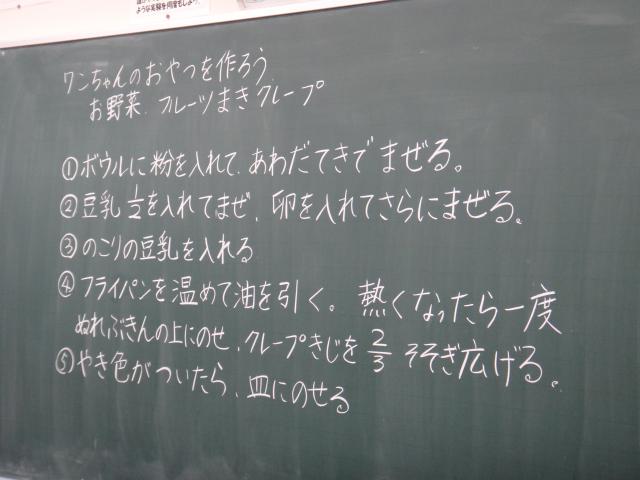 ワンちゃんのおやつを作ろう
お野菜.フルーツまきクレープ
①ボウルに粉を入れて、あわだてきでまぜる。
②豆乳1/2を入れてまぜ、卵を入れてさらにまぜる。
③のこりの豆乳を入れる
④フライパンを温めて油を引く。熱くなったら一度
ぬれぶきんの上にのせ、クレープきじを2/3そそぎ広げる。
⑤やき色がついたら、皿にのせる